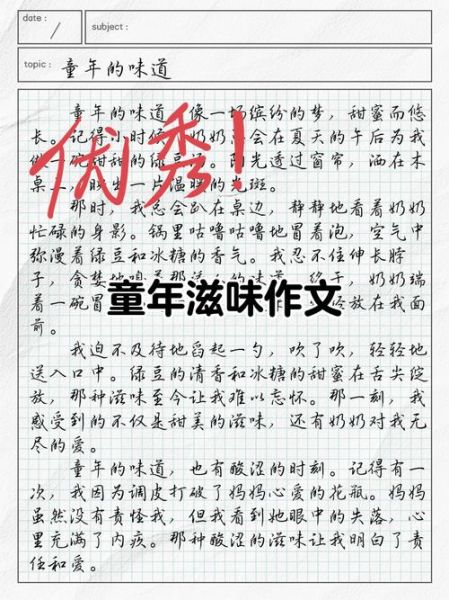 date :
/
subject :
topic : 童年的味道
童年的味道 像一场缤纷的梦，甜蜜而悠
长。记得小时 奶奶 会在夏天的午后为我
一碗甜甜的绿豆 光透过窗帘，洒在木
桌 一片温 光斑。
优秀！
那时，我总会趴在桌边，静静地看着奶奶
忙碌的身影。锅里咕噜咕噜地冒着泡，空气中
弥漫着绿豆和冰糖的香气。我忍不住伸长脖
子，贪婪地 奶奶端
着一碗冒 放在我面
前。
童年滋味作文
我迫不及待地舀起一勺，吹了吹，轻轻地
送入口中。绿豆的清香和冰糖的甜蜜在舌尖绽
放，那种滋味至今让我难以忘怀。那一刻，我
感受到的不仅是甜美的滋味，还有奶奶对我无
尽的爱。
童年的味道，也有酸涩的时刻。记得有一
次，我因为调皮打破了妈妈心爱的花瓶。妈妈
虽然没有责怪我，但我看到她眼中的失落，心
里充满了内疚。那种酸涩的滋味让我明白了责
任和爱。